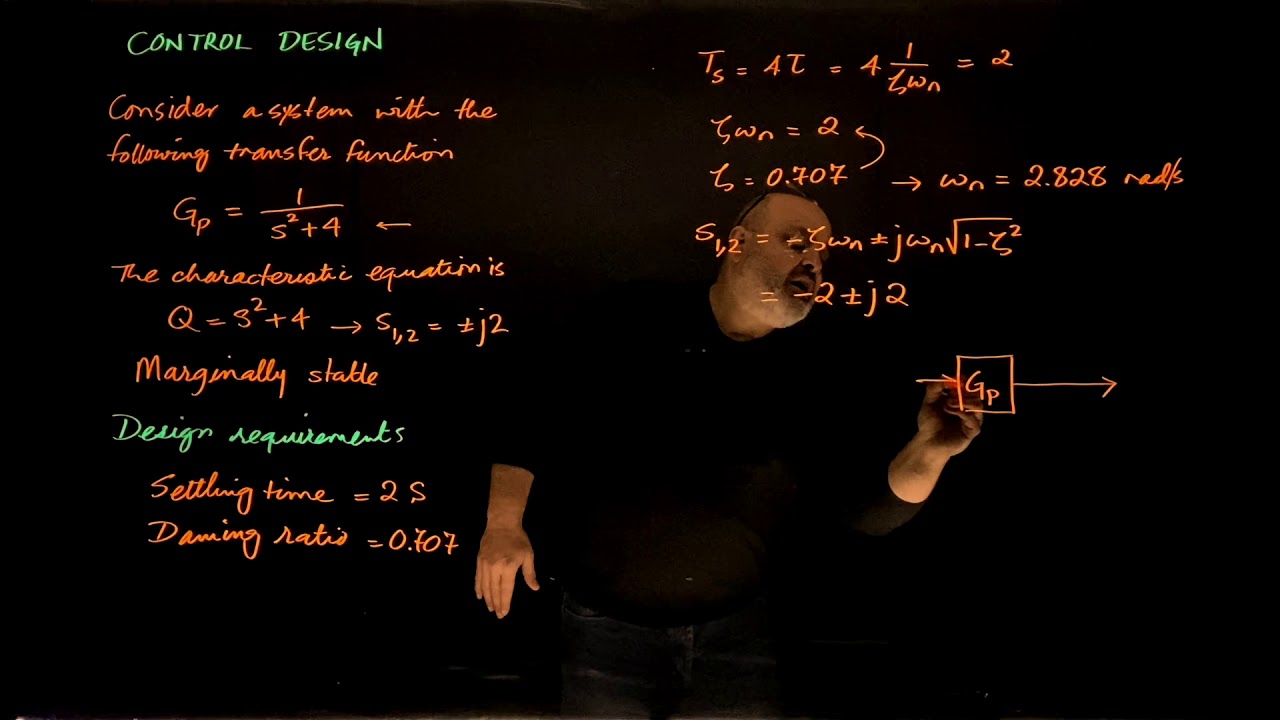 CONTROL DESIGN
Consider a system with the
following transfer function
Gp = 1/(s²+4) ←
The characteristic equation is
Q = s²+4 → s1,2 = ±j2
Marginally stable
Design requirements
Settling time = 2 S
Daming ratio = 0.707
Ts = 4τ = 4 1/(ζωn) = 2
ζωn = 2
ζ = 0.707 → ωn = 2.828 rad/s
s1,2 = -ζωn ± jωn√(1-ζ²)
= -2 ± j2
Gp